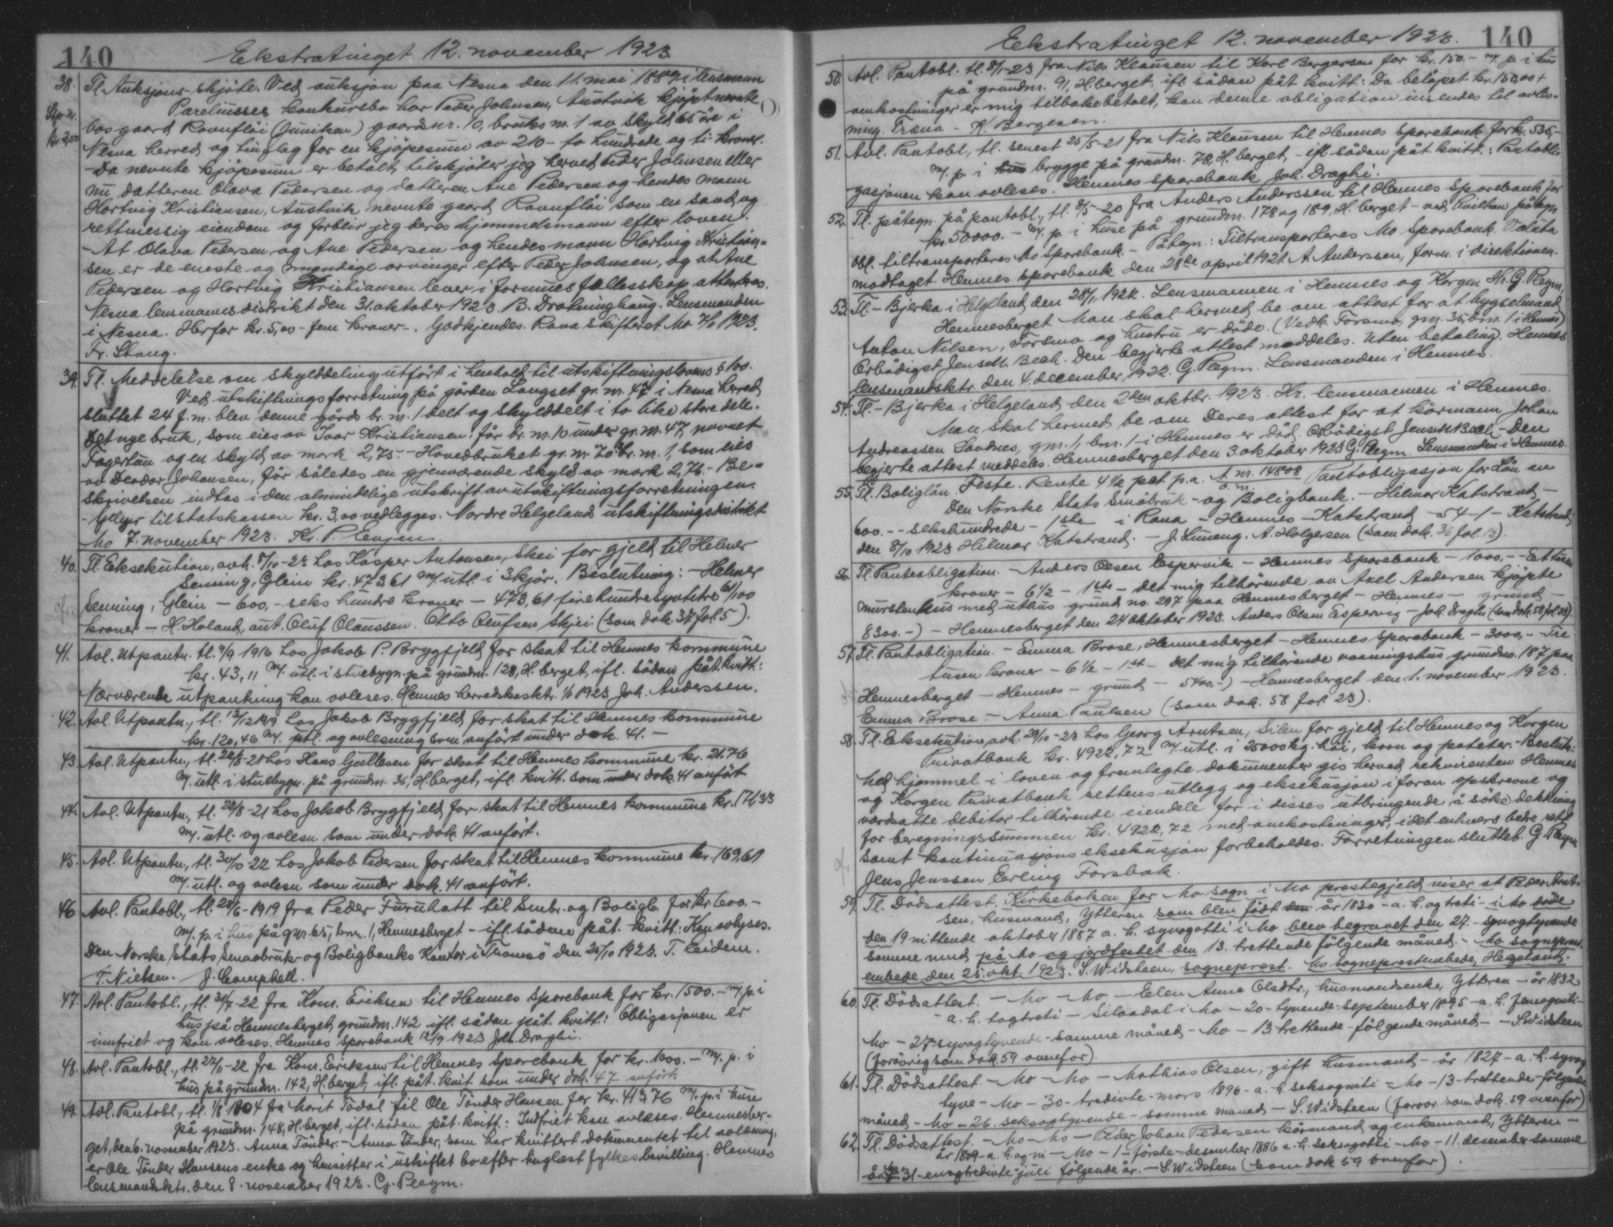 140 Ekstratinget 12. november 1923
38. Tl. Auksjons-skjöte. Ved auksjon paa Nesna den 11. mai 1889 i lensmann
konkursbo har Peder Johnsen, Austvik kjöpt nevnte
bos gaard Ravnflåi gaardsnr. 10, bruks nr. 1 av skyld 65 öre i
Nesna herred og tinglag for en kjöpesum av 210 - to hundrede og ti kroner.
Da nevnte kjöpesum er betalt, tilskjöter jeg herved Peder Johnsen eller
nu datteren Olava Pedersen og datteren Ane Pedersen og hendes mann
Hartvig Kristiansen, Austvik nevnte gaard Ravnflåi som en sand og
rettmessig eiendom og forblir jeg deres hjemmelsmann efter loven.
- At Olava Pedersen og Ane Pedersen og hendes mann Hartvig Kristian-
sen er de eneste og myndige arvinger efter Peder Johnsen, og at Ane
Pedersen og Hartvig Kristiansen lever i formues fællesskap attesteres.
Nesna lensmannsdistrikt den 31. oktober 1923. B. Drotninghaug. Lensmanden
i Nesna. Herfor kr. 5,00 - fem kroner. Godkjendes. Rana skifteret Mo 7/11 1923.
Fr. Stang.
39. Tl. Meddelelse om skylddeling utfört i henhold til utskiftningslovens § 100.
Ved utskiftningsforretning på gården Langset gr. nr. 47 i Nesna herred
sluttet 24 f.m. blev denne gårds br. nr. 1 delt og skylddelt i to like store dele.
Det nye bruk, som eies av Ivar Kristiansen, får br. nr. 10 under gr. nr. 47, navnet
Fagertun og en skyld av mark 2,75 - Hovedbruket gr. nr. 70 br. nr. 1, som eies
av Deodor Johansen, får således en gjenværende skyld av mark 2,76 - Be-
skrivelsen indtas i den almindelige utskrift av utskiftningsforretningen
- Gebyr til statskassen kr. 3,00 vedlegges. Nordre Helgeland utskiftningsdistrikt
Mo 7. november 1923. Kr. P. Engen.
40. Tl. Eksekution, avh. 8/10-23 hos Kasper Antonsen, Skei for gjeld til Helmer
Senning, Glein kr. 473,61 m/ utl. i 3 kjör. Beslutning: - Helmer
Senning, Glein - 600,- seks hundre kroner - 473,61 fire hundre syvtitre 61/100
kroner - H. Haland, aut. Oluf Olaussen. Otto Olufsen, Skjei (som dok 37 fol 5).
41. Avl. Utpantn. tl. 9/9 1916 hos Jakob P. Bryggfjeld for skat til Hemnes kommune
kr. 43,11 m/ utl. i stuebygn. på grundnr. 128, H.berget, ifl. sådan påt. kvitt:
Nærværende utpantning kan avleses. Hemnes herredskasktr. 1/6 1923 Joh. Anderssen.
42. Avl. Utpantn., tl. 12/12 1919 hos Jakob Bryggfjeld for skat til Hemnes kommune
kr. 120,46 m/ utl. og avlesning som anfört under dok. 41. -
43. Avl. Utpantn., tl. 22/8-21 hos Hans Gullesen for skat til Hemnes kommune kr. 21.76
m/ utl. i stuebygn. på grundnr. 36, H.berget, ifl. kvitt. som under dok 41 anfört
44. Avl. Utpantn., tl. 22/8-21 hos Jakob Bryggfjeld for skat til Hemnes kommune kr. 174,33
m/ utl. og avlesn. som under dok. 41 anfört.
45. Avl. Utpantn., tl. 30/10 22 hos Jakob Pedersen for skat til Hemnes kommune kr. 169,61
m/ utl. og avlesn. som under dok. 41 anfört.
46. Avl. Pantobl., tl. 28/6-1919 fra Peder Furuhatt til Småbr. og Boligb. for kr. 600.-
m/ p. i hus på gnr. 65, bnr. 1, Hemnesberget - ifl. sådan påt. kvitt: Kan avlyses.
Den Norske Stats Smaabruk- og Boligbanks Kontor i Tromsö den 26/10 1923. T. Eidem.
T. Nielsen. J. Camphell.
47. Avl. Pantobl., tl. 3/7-22 fra Konr. Eriksen til Hemnes Sparebank for kr. 1500.- m/ p. i
hus på Hemnesberget, grundnr. 142 ifl. sådan påt. kvitt: Obligasjonen er
innfriet og kan avleses. Hemnes Sparebank 12/9 1923 Joh. Draghi.
48. Avl. Pantobl., tl. 27/11-22 fra Konr. Eriksen til Hemnes Sparebank for kr. 1000.- m/ p. i
hus på grundnr. 142, H.berget, ifl. påt. kvitt som under dok. 47 anfört.
49. Avl. Pantobl., tl. 1/8 1904 fra Morit Tödal til Ole Tönder Hansen for kr. 413,76 m/ p. i huse
på grundnr. 148, H.berget, ifl. sådan påt. kvitt: Indfriet kan avleses. Hemnesber-
get, den 6. november 1923. Anna Tönder - Anna Tönder, som har kvittert dokumentet til avlæsning,
er Ole Tönder Hansens enke og hensitter i uskiftet bo efter tinglæst fylkesbevilling. Hemnes
lensmandsktr. den 8. november 1923. G. Pleym.
Ekstratinget 12. november 1923. 140
50. Avl. Pantobl. tl. 8/1-23 fra Nils Klausen til Karl Bergersen for kr. 150.- m/ p. i hus
på grundnr. 91, H.berget, ifl. sådan påt. kvitt: Da belöpet kr. 150,00 +
omkostninger er mig tilbakebetalt, kan denne obligation innsendes til avles-
ning. Træna - K. Bergersen.
51. Avl. Pantobl., tl. senest 25/5-21 fra Nils Klausen til Hemnes Sparebank for kr. 535,-
m/ p. i brygge på grundnr. 78, H.berget, - ifl. sådan påt. kvitt: Pantobli-
gasjonen kan avleses. Hemnes Sparebank Joh. Draghi.
52. Tl. påtegn. på pantobl., tl. 8/5-20 fra Anders Anderssen til Hemnes Sparebank for
kr. 50000.- m/ p. i huse på grundnr. 178 og 189, H.berget - ved hvilken påtegn
obl. tiltransporteres Mo Sparebank. - Påtegn: Tiltransporteres Mo Sparebank. Valuta
modtaget. Hemnes Sparebank den 28de april 1921 A. Anderssen, form. i direktionen.
53. Tl. - Bjerka i Helgeland, den 28/11 1922. Lensmannen i Hemnes og Korgen Hr. G. Pleym,
Hemnesberget. Man skal hermed be om attest for at bygselmand
Anton Nilsen, Forsmo og hustru er döde. (Vedk. Forsmo, gnr. 36, bnr. 1 i Hemnes)
Ærbödigst Jens M. Bech. Den begjerte attest meddeles. Uten betaling. Hemnes
lensmandsktr. den 4. december 1922. G. Pleym. Lensmanden i Hemnes.
54. Tl. - Bjerka i Helgeland den 2den oktbr. 1923. Hr. lensmannen i Hemnes.
Man skal hermed be om Deres attest for at kårmann Johan
Andreassen Sandnes, gnr. 1, bnr. 1 - i Hemnes er död. Ærbödigst Jens M. Bech - Den
begjerte attest meddeles. Hemnesberget den 3. oktober 1923 G. Pleym. Lensmanden i Hemnes.
55. Tl. Boliglån. Feste. Rente 4½ pct. p.a. L. nr. 14808 Pantobligasjon for Lån av
Den Norske Stats Småbruk- og Boligbank. - Helmar Katstrand, -
600.- - sekshundrede - 1ste i Rana - Hemnes - Katstrand - 54 - 1 - Katstrand
den 8/10 1923 Hilmar Katstrand. - J. Limeng. A. Holgersen (som dok. fol. 13).
56. Tl. Panteobligation. - Anders Olsen Espervik - Hemnes Sparebank - 1000,- - Et tusen
kroner - 6½ - 1ste - det mig tilhörende av Axel Andersen kjöpte
murstenhus med uthus grund no. 297 paa Hemnesberget - Hemnes - grund -
8300.-) - Hemnesberget den 24 oktober 1923. Anders Olsen Espervig - Joh. Draghi (som dok. 58 fol. 23).
57. Tl. Pantobligation. - Emma Brose, Hemnesberget - Hemnes Sparebank - 3000,- - Tre
tusen kroner - 6½ - 1ste - det mig tilhörende vaaningshus grundnr. 187 paa
Hemnesberget - Hemnes - grund - 5400.-) - Hemnesberget den 1. november 1923.
Emma Brose - Anna Paulsen (som dok. 58 fol 23).
58. Tl. Eksekution, avh. 29/10-23 hos Georg Arntsen, Silen for gjeld til Hemnes og Korgen
Privatbank kr. 4922,72 m/ utl. i 25000 kg. höi, korn og poteter. - Beslutn:
Med hjemmel i loven og fremlagte dokumenter gis herved rekvirenten Hemnes
og Korgen Privatbank rettens utlegg og eksekusjon i foran opskrevne og
værdsatte debitor tilhörende eiendele for i disses utbringende å söke dekning
for beregningssummen kr. 4922,72 med omkostninger, idet enhvers bedre rett
samt kontinuasjons eksekusjon forbeholdes. Forretningen sluttet. G. Pleym
Jens Jenssen Erling Forsbak.
59. Tl. Dödsattest. Kirkeboken for Mo sogn i Mo prestegjeld viser at Peder Arnt-
sen, husmand, Ytteren som blev födt år 1830 - a. h. og treti - i Mo döde
den 19 nittende oktober 1887 a. h. syvogotti i Mo blev begravet den 27 - syvogtyvende
samme mnd på Mo og jordfestet den 13. trettende fölgende måned. - Mo sogneprest-
embede den 25. okt 1923. S. Widsteen, sogneprest. Mo sogneprestembede, Helgeland.
60. Tl. Dödsattest. - Mo - Mo - Elen Anne Olsdtr., husmandsenke, Ytteren - år 1832
- a. h. togtreti - Silaadal i Mo - 20 - tyvende - september 1895 - a. h. femognitti -
Mo - 27 - syvogtyvende - samme måned - Mo - 13 trettende - fölgende måned - - S. Widsteen
(forövrig som dok 59 ovenfor)
61. Tl. Dödsattest - Mo - Mo - Mathias Olsen, gift husmand - år 1827 - a. h. syvog-
tyve - Mo - 30 - tredivte - mars 1896 - a. h. seksognitti - Mo - 13 - trettende - fölgende
måned - Mo - 26. seksogtyvende - samme måned - S. Widsteen (forövr. som dok. 59 ovenfor)
62. Tl. Dödsattest. - Mo - Mo - Peder Johan Pedersen kårmand og enkemand, Ytteren -
år 1809 - a. h. og ni - Mo - 1 - förste - desember 1886 a. h. seksogotti - Mo - 11. desember samme
31 - enogtredivte juli fölgende år. - S. Widsteen (som dok 59 ovenfor).